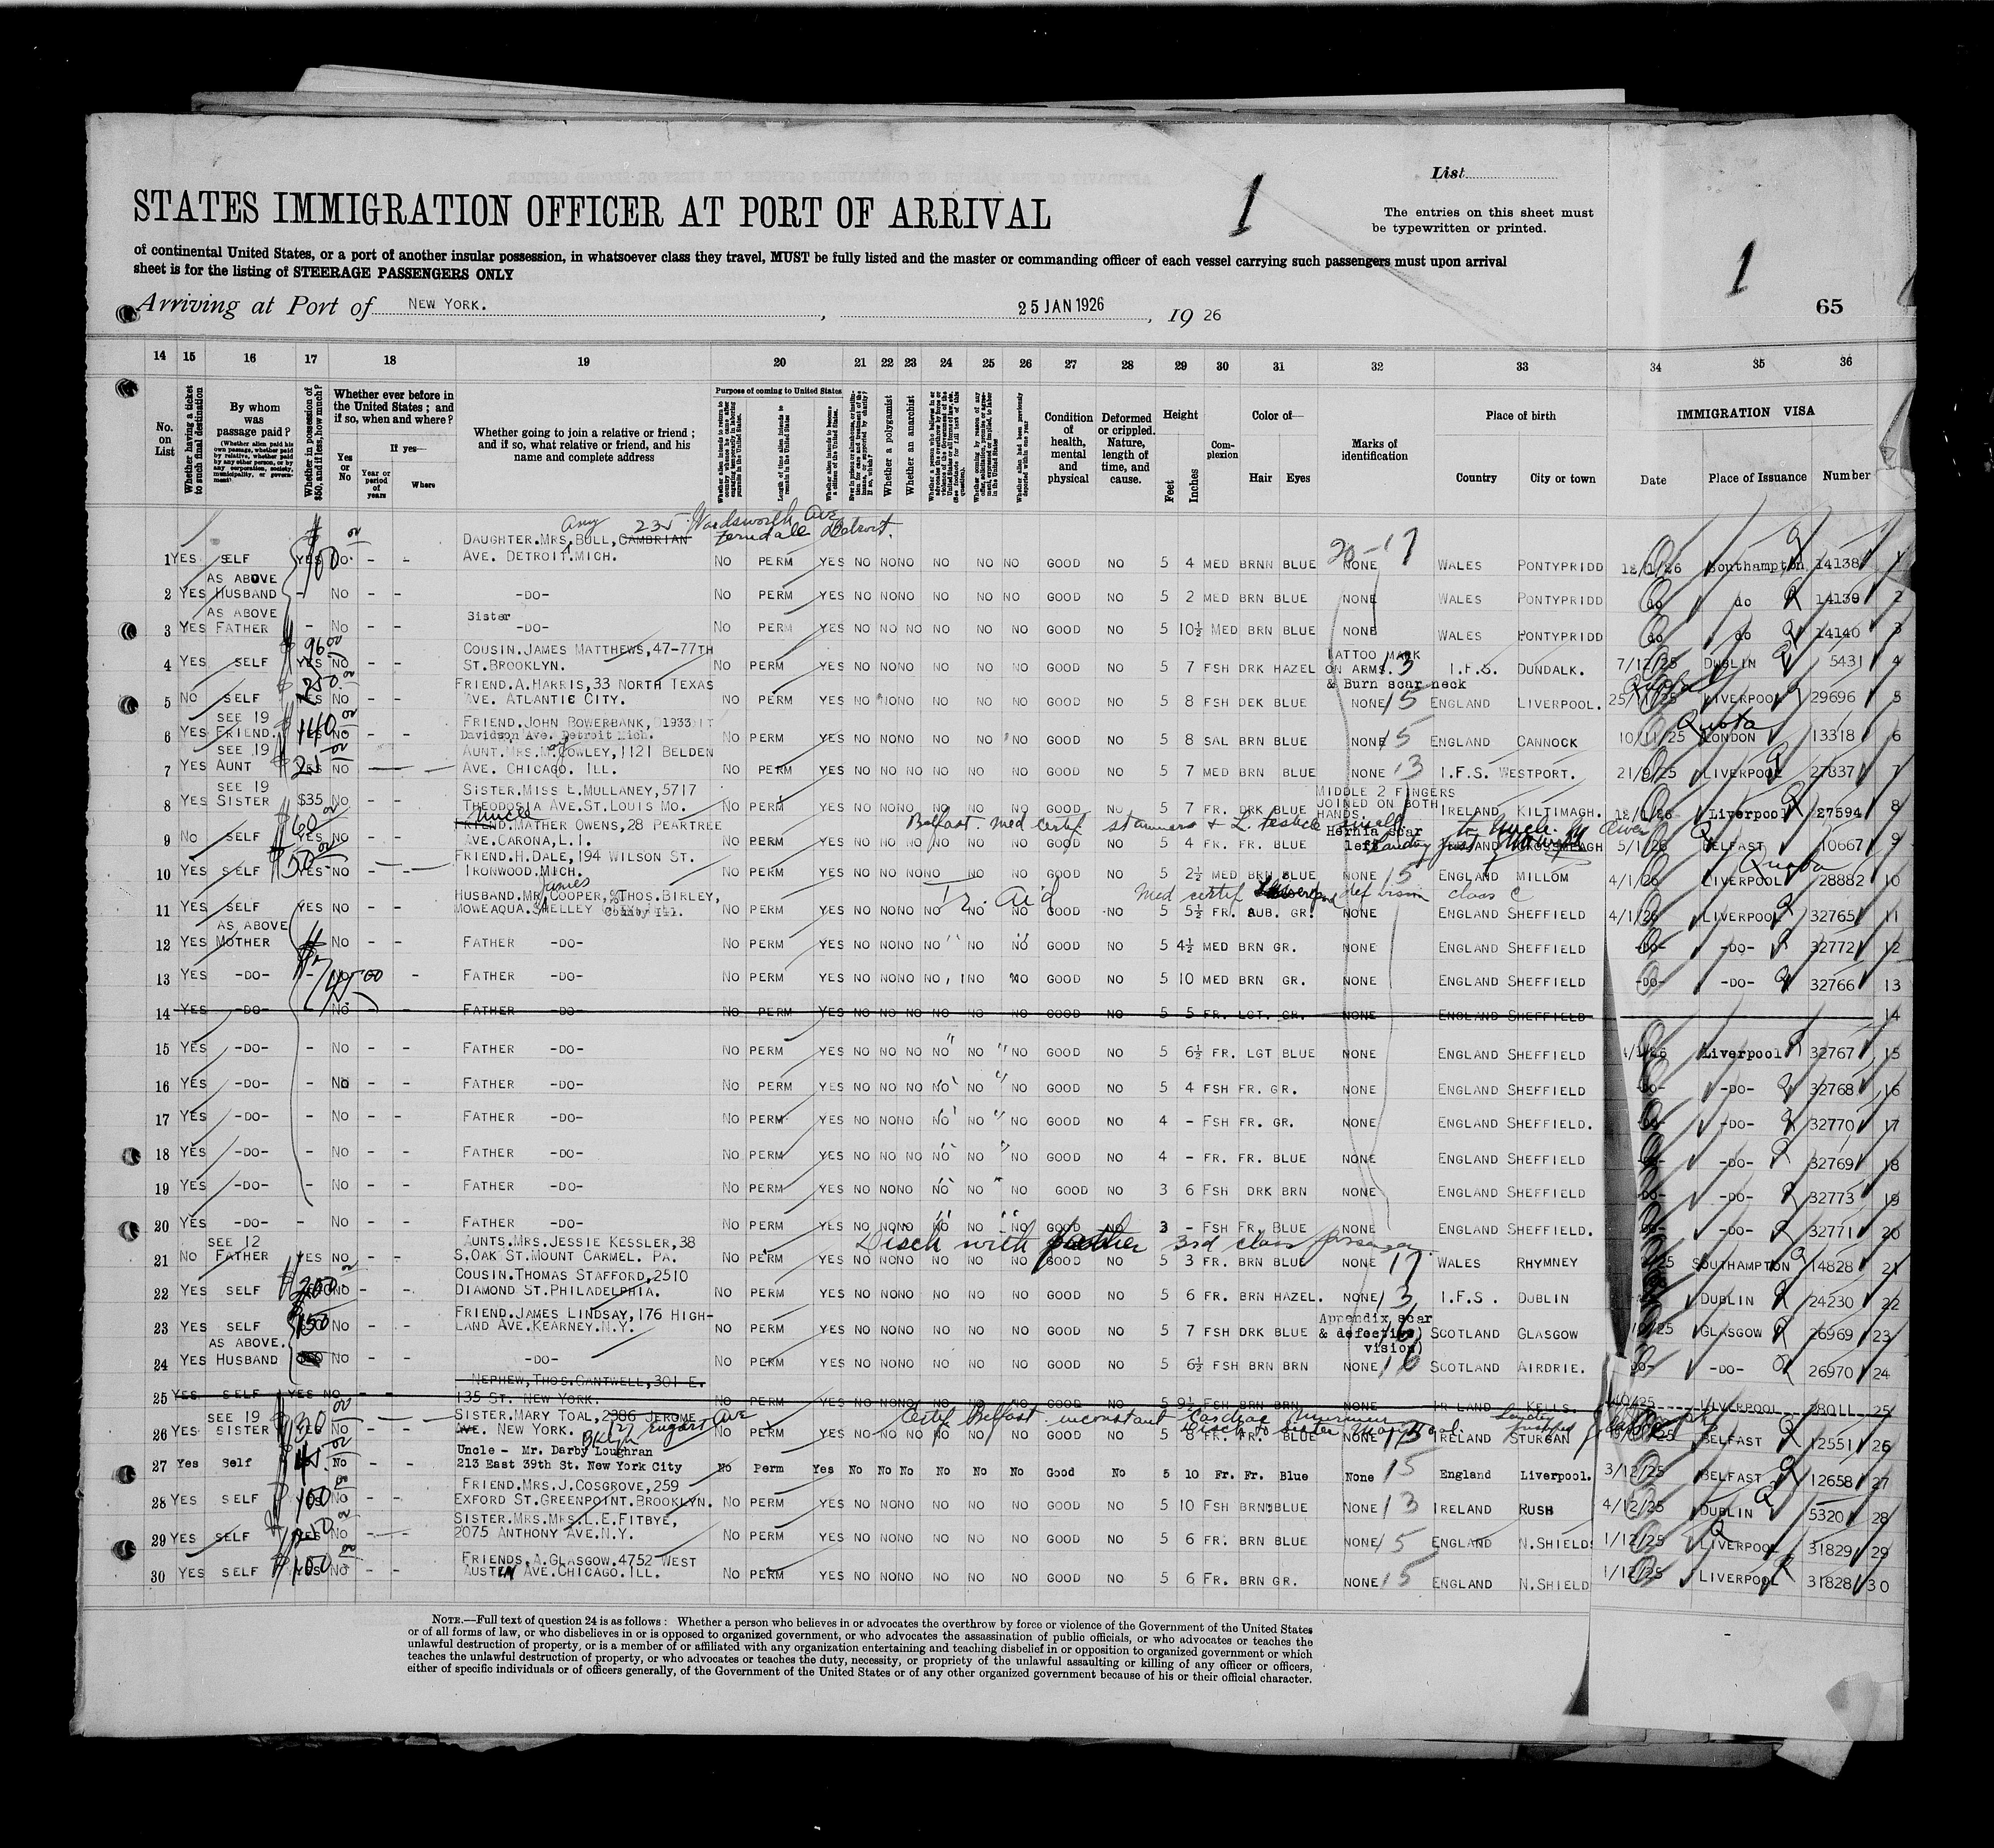 List
1
STATES IMMIGRATION OFFICER AT PORT OF ARRIVAL
The entries on this sheet must
be typewritten or printed.
1
of continental United States, or a port of another insular possession, in whatsoever class they travel, MUST be fully listed and the master or commanding officer of each vessel carrying such passengers must upon arrival
sheet is for the listing of STEERAGE PASSENGERS ONLY
65
Arriving at Port of NEW YORK. , 25 JAN 1926 , 19 26
14 15 16 17 18 19 20 21 22 23 24 25 26 27 28 29 30 31 32 33 34 35 36
No. on List
Whether having a ticket to such final destination
By whom was passage paid?
Whether in possession of $50, and if less, how much?
Whether ever before in the United States; and if so, when and where?
Yes or No
If yes—
Year or period of years
Where
Whether going to join a relative or friend; and if so, what relative or friend, and his name and complete address
Purpose of coming to United States
Length of time alien intends to remain in the United States
Whether alien intends to become a citizen of the United States
Whether a polygamist
Whether an anarchist
Condition of health, mental and physical
Deformed or crippled. Nature, length of time, and cause.
Height
Feet
Inches
Complexion
Color of—
Hair
Eyes
Marks of identification
Place of birth
Country
City or town
IMMIGRATION VISA
Date
Place of Issuance
Number
Amy 235 Wordsworth Ave
Ferndale Detroit.
1 YES SELF YES NO - - DAUGHTER.MRS.BULL, CAMBRIAN
AVE. DETROIT.MICH. NO PERM YES NO NO NO NO NO NO GOOD 5 4 MED BRNN BLUE NONE WALES PONTYPRIDD 18/1/26 Southampton 14138 1
AS ABOVE
2 YES HUSBAND - NO - - -DO- NO PERM YES NO NO NO NO NO NO GOOD NO 5 2 MED BRN BLUE NONE WALES PONTYPRIDD do do 14139 2
AS ABOVE
3 YES FATHER - NO - - Sister -DO- NO PERM YES NO NO NO NO NO NO GOOD NO 5 10½ MED BRN BLUE NONE WALES PONTYPRIDD do do 14140 3
4 YES SELF YES NO - - COUSIN.JAMES MATTHEWS,47-77TH
ST.BROOKLYN. NO PERM YES NO NO NO NO NO NO GOOD NO 5 7 FSH DRK HAZEL TATTOO MARK ON ARMS. & Burn scar neck I.F.S. DUNDALK. 7/12/25 DUBLIN 5431 4
5 NO SELF YES NO - - FRIEND.A.HARRIS,33 NORTH TEXAS
AVE. ATLANTIC CITY. NO PERM YES NO NO NO NO NO NO GOOD NO 5 8 FSH DEK BLUE NONE 15 ENGLAND LIVERPOOL. 25/11/25 LIVERPOOL 29696 5
SEE 19
6 YES FRIEND. YES NO - - FRIEND.JOHN BOWERBANK, 1933
Davidson Ave. Detroit Mich. NO PERM YES NO NO NO NO NO NO GOOD NO 5 8 SAL BRN BLUE NONE 15 ENGLAND CANNOCK 10/11/25 LONDON 13318 6
Quota
SEE 19
7 YES AUNT YES NO AUNT.MRS.M.COWLEY,1121 BELDEN
AVE. CHICAGO. ILL. NO PERM YES NO NO NO NO NO NO GOOD NO 5 7 MED BRN BLUE NONE 13 I.F.S. WESTPORT. 21/9/25 LIVERPOOL 27837 7
SEE 19
8 YES SISTER $35 NO - - SISTER.MISS E.MULLANEY,5717
THEODOSIA AVE.ST.LOUIS MO. NO PERM YES NO NO NO NO NO NO GOOD NO 5 7 FR. DRK BLUE MIDDLE 2 FINGERS JOINED ON BOTH HANDS. IRELAND KILTIMAGH. 12/1/26 Liverpool 27594 8
Belfast. med certif stammers & L. testicle small
9 NO SELF YES NO - - Uncle FRIEND.MATHER OWENS,28 PEARTREE
AVE.CARONA,L.I. NO PERM YES NO NO NO NO NO NO GOOD NO 5 4 FR. FR. BLUE Hernia scar left 5/1/26 BELFAST 10667 9
10 YES SELF YES NO FRIEND.H.DALE,194 WILSON ST.
IRONWOOD.MICH. NO PERM YES NO NO NO NO NO NO GOOD NO 5 2½ MED BRN BLUE NONE 15 ENGLAND MILLOM 4/1/26 LIVERPOOL 28882 10
Quota
Tr. Aid
Med certif def vision class C
11 YES SELF YES NO - - James HUSBAND.MR.COOPER,%THOS.BIRLEY,
MOWEAQUA.SHELLEY County Ill. NO PERM YES NO NO NO NO NO NO GOOD NO 5 5½ FR. AUB. GR. NONE ENGLAND SHEFFIELD 4/1/26 LIVERPOOL 32765 11
AS ABOVE
12 YES MOTHER NO - - FATHER -DO- NO PERM YES NO NO NO NO NO NO GOOD NO 5 4½ MED BRN GR. NONE ENGLAND SHEFFIELD -DO- -DO- 32772 12
13 YES -DO- - NO - FATHER -DO- NO PERM YES NO NO NO NO NO NO GOOD NO 5 10 MED BRN GR. NONE ENGLAND SHEFFIELD -DO- -DO- 32766 13
14 YES -DO- NO FATHER -DO- NO PERM YES NO NO NO NO NO NO GOOD NO 5 5 FR. LGT. GR. NONE ENGLAND SHEFFIELD 14
15 YES -DO- - NO - - FATHER -DO- NO PERM YES NO NO NO NO NO NO GOOD NO 5 6½ FR. LGT BLUE NONE ENGLAND SHEFFIELD Liverpool 32767 15
16 YES -DO- - NO - - FATHER -DO- NO PERM YES NO NO NO NO NO NO GOOD NO 5 4 FSH FR. GR. NONE ENGLAND SHEFFIELD -DO- -DO- 32768 16
17 YES -DO- - NO - - FATHER -DO- NO PERM YES NO NO NO NO NO NO GOOD NO 4 - FSH FR. GR. NONE ENGLAND SHEFFIELD. -DO- -DO- 32770 17
18 YES -DO- - NO - - FATHER -DO- NO PERM YES NO NO NO NO NO NO GOOD NO 4 - FR. FR. BLUE NONE ENGLAND SHEFFIELD -DO- -DO- 32769 18
19 YES -DO- - NO - - FATHER -DO- NO PERM YES NO NO NO NO NO NO GOOD NO 3 6 FSH DRK BRN NONE ENGLAND SHEFFIELD -DO- -DO- 32773 19
20 YES -DO- - NO - - FATHER -DO- NO PERM YES NO NO NO NO NO NO GOOD NO 3 - FSH FR. BLUE NONE ENGLAND SHEFFIELD. -DO- -DO- 32771 20
Disch with father 3rd class passenger
SEE 12
21 NO FATHER YES NO - - AUNTS.MRS.JESSIE KESSLER,38
S.OAK ST.MOUNT CARMEL. PA. NO PERM YES NO NO NO NO NO NO GOOD NO 5 3 FR. BRN BLUE NONE 17 WALES RHYMNEY SOUTHAMPTON 14828 21
22 YES SELF NO - - COUSIN.THOMAS STAFFORD,2510
DIAMOND ST.PHILADELPHIA. NO PERM YES NO NO NO NO NO NO GOOD NO 5 6 FR. BRN HAZEL. NONE 13 I.F.S. DUBLIN DUBLIN 24230 22
23 YES SELF NO - - FRIEND.JAMES LINDSAY,176 HIGH-
LAND AVE.KEARNEY.N.Y. NO PERM YES NO NO NO NO NO NO GOOD NO 5 7 FSH DRK BLUE Appendix scar & defective vision) SCOTLAND GLASGOW GLASGOW 26969 23
AS ABOVE.
24 YES HUSBAND NO - - -DO- NO PERM YES NO NO NO NO NO NO GOOD NO 5 6½ FSH BRN BRN NONE 16 SCOTLAND AIRDRIE. DO- -DO- 26970 24
25 YES SELF YES NO - - NEPHEW,THOS.CANTWELL,301 E.
135 ST. NEW YORK. NO PERM YES NO NO NO NO NO NO GOOD NO 5 9½ FSH BRN BRN NONE IRELAND KELLS. LIVERPOOL 28011 25
Certif Belfast inconstant Cardiac Murmur
SEE 19
26 YES SISTER YES NO SISTER.MARY TOAL,2386 JEROME
AVE. NEW YORK. NO PERM YES NO NO NO NO NO NO GOOD NO 5 8 FR. FR. BLUE NONE 13 IRELAND STURGAN BELFAST 12551 26
27 Yes Self No - - Uncle - Mr. Darby Loughran
213 East 39th St. New York City No Perm Yes No No No No No No Good No 5 10 Fr. Fr. Blue None 15 England Liverpool. 3/12/25 BELFAST 12658 27
28 YES SELF YES NO - - FRIEND.MRS.J.COSGROVE,259
EXFORD ST.GREENPOINT.BROOKLYN. NO PERM YES NO NO NO NO NO NO GOOD NO 5 10 FSH BRN BLUE NONE 13 IRELAND RUSH 4/12/25 DUBLIN 5320 28
29 YES SELF YES NO SISTER.MRS.MRS.L.E.FITBYE,
2075 ANTHONY AVE.N.Y. NO PERM YES NO NO NO NO NO NO GOOD NO 5 6 FR. BRN BLUE NONE 15 ENGLAND N.SHIELDS 1/12/25 LIVERPOOL 31829 29
30 YES SELF YES NO - - FRIENDS.A.GLASGOW.4752 WEST
AUSTIN AVE.CHICAGO.ILL. NO PERM YES NO NO NO NO NO NO GOOD NO 5 6 FR. BRN GR. NONE 15 ENGLAND N.SHIELD 1/12/25 LIVERPOOL 31828 30
NOTE.—Full text of question 24 is as follows: Whether a person who believes in or advocates the overthrow by force or violence of the Government of the United States
or of all forms of law, or who disbelieves in or is opposed to organized government, or who advocates the assassination of public officials, or who advocates or teaches the
unlawful destruction of property, or is a member of or affiliated with any organization entertaining and teaching disbelief in or opposition to organized government or which
teaches the unlawful destruction of property, or who advocates or teaches the duty, necessity, or propriety of the unlawful assaulting or killing of any officer or officers,
either of specific individuals or of officers generally, of the Government of the United States or of any other organized government because of his or their official character.